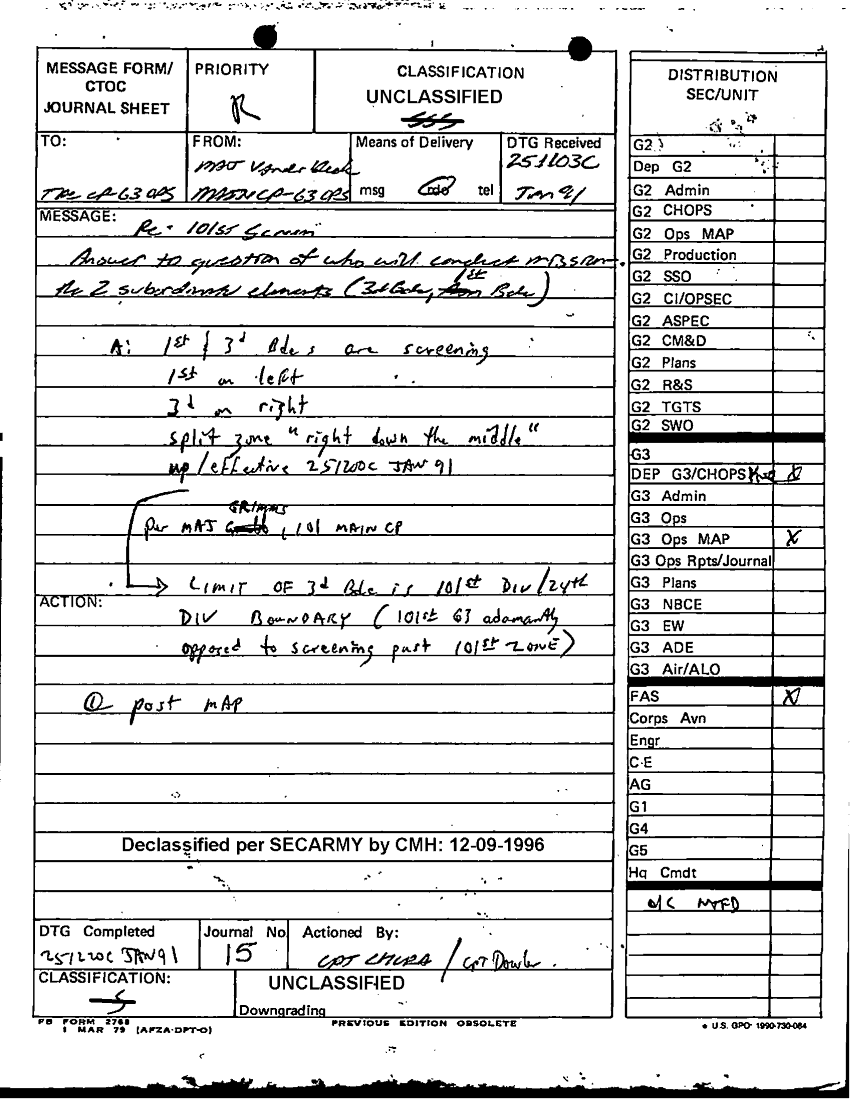 MESSAGE FORM/
CTOC
JOURNAL SHEET
PRIORITY
R
CLASSIFICATION
UNCLASSIFIED
TO:
FROM:
Means of Delivery
DTG Received
MAJ
251103C
TAC CP-G3 OPS
MAIN CP-G3 OPS
msg
tel
Jan 91
MESSAGE:
Re - 101st Screen
Answer to question of who will conduct
the 2 subordinate elements (3d Bde, 1st Bde)
A: 1st & 3d Bdes are screening
1st on left
3d on right
split zone "right down the middle"
up/effective 251200C JAN 91
GRIMMS
per MAJ , 101 MAIN CP
LIMIT OF 3d Bde is 101st Div/24th
ACTION:
DIV BOUNDARY (101st G3 adamantly
opposed to screening past 101st ZONE)
① post MAP
Declassified per SECARMY by CMH: 12-09-1996
DTG Completed
Journal No
Actioned By:
251220C JAN 91
15
CPT / CPT Dowler
CLASSIFICATION:
S
UNCLASSIFIED
Downgrading
FB FORM 2768
1 MAR 79 (AFZA-DPT-O)
PREVIOUS EDITION OBSOLETE
DISTRIBUTION
SEC/UNIT
G2
Dep G2
G2 Admin
G2 CHOPS
G2 Ops MAP
G2 Production
G2 SSO
G2 CI/OPSEC
G2 ASPEC
G2 CM&D
G2 Plans
G2 R&S
G2 TGTS
G2 SWO
G3
DEP G3/CHOPS X
G3 Admin
G3 Ops
G3 Ops MAP X
G3 Ops Rpts/Journal
G3 Plans
G3 NBCE
G3 EW
G3 ADE
G3 Air/ALO
FAS X
Corps Avn
Engr
C-E
AG
G1
G4
G5
Hq Cmdt
O/C
U.S. GPO: 1990-730-084